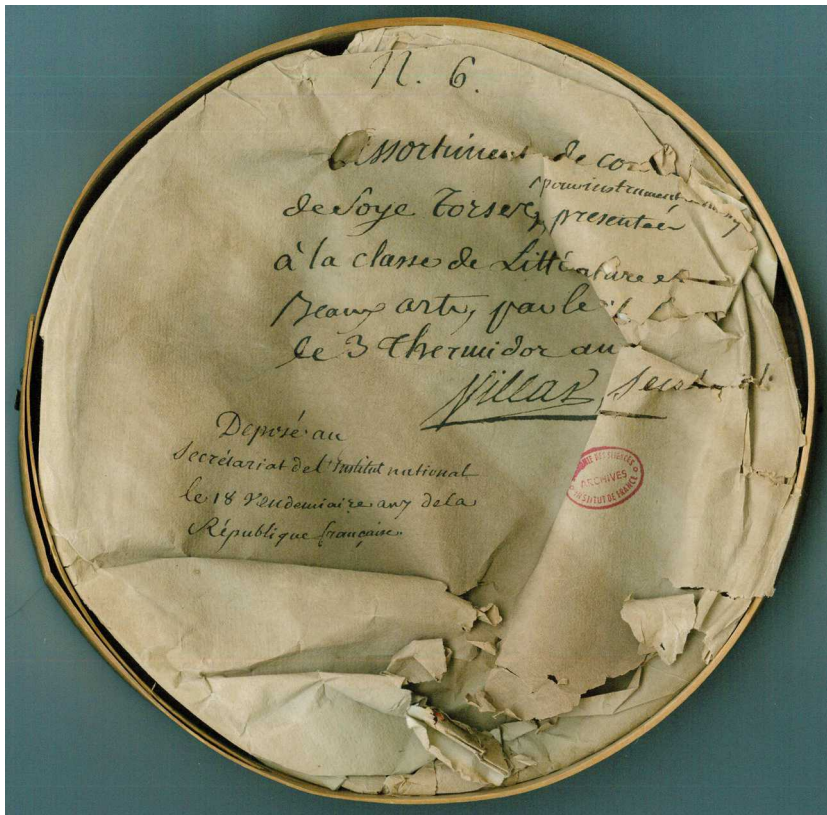 N. 6.
Assortiment de cor
pour instruments
de Soye torses, presentées
à la classe de Littérature et
Beaux arts, par le
le 3 Thermidor an
Villar, Secr
Deposé au
Secrétariat de l'Institut national
le 18 Vendemiaire an 7 de la
République française.
ARCHIVES
INSTITUT DE FRANCE